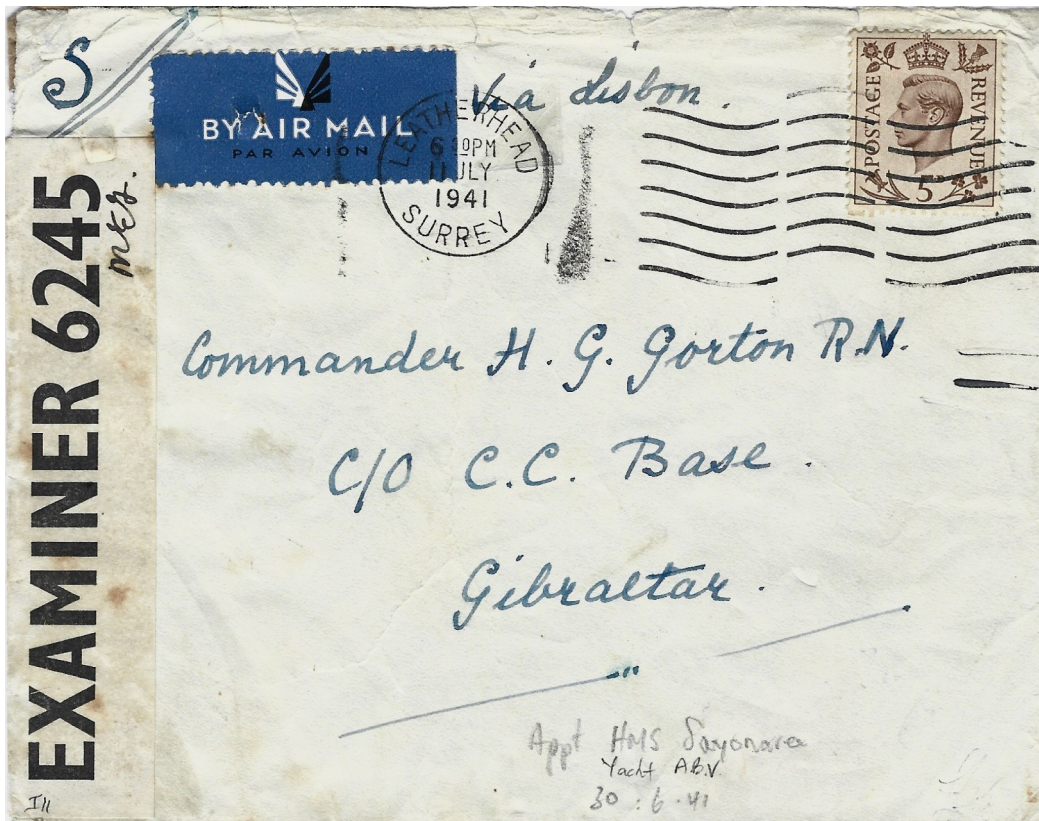 S
BY AIR MAIL
PAR AVION
Via Lisbon.
LEATHERHEAD
6 30PM
11 JLY
1941
SURREY
POSTAGE
REVENUE
5D
EXAMINER 6245
Commander H. G. Gorton R.N.
C/O C.C. Base.
Gibraltar.
Appt HMS Sayonara
Yacht A.B.V
30 : 6 . 41